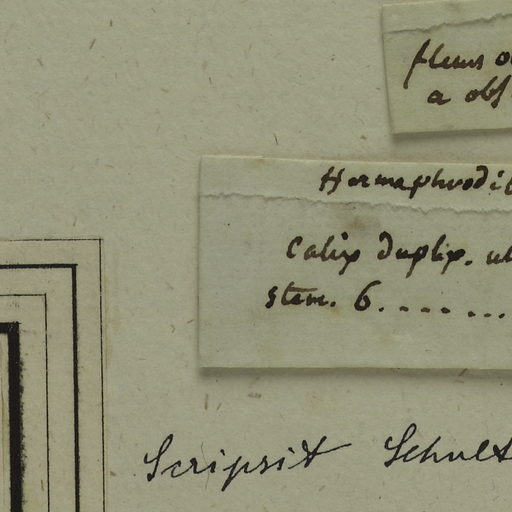 a obs
Hermaphrodit
Calix duplex. ul
stem. 6........
Scripsit Schult